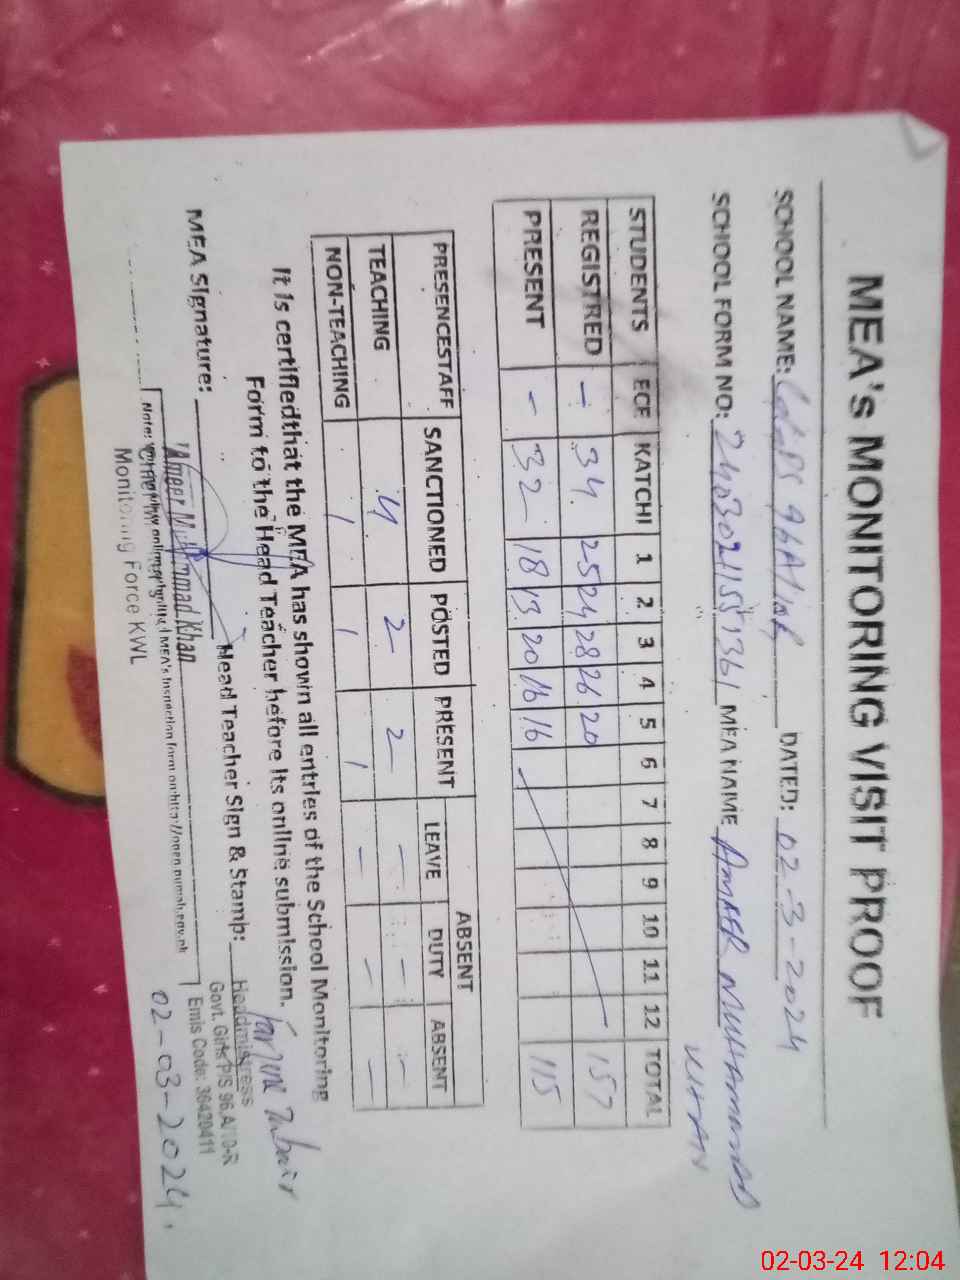 MEA's MONITORING VISIT PROOF
SCHOOL NAME: GGPS 96A/10R DATED: 02-3-2024
SCHOOL FORM NO: MEA NAME AMEER MUHAMMAD
KHAN
STUDENTS ECE KATCHI 1 2 3 4 5 6 7 8 9 10 11 12 TOTAL
REGISTRED - 34 25 24 28 26 20 157
PRESENT - 32 18 13 20 16 16 115
PRESENCESTAFF SANCTIONED POSTED PRESENT ABSENT
LEAVE DUTY ABSENT
TEACHING 4 2 2 - - -
NON-TEACHING 1 1 1 - - -
It is certifiedthat the MEA has shown all entries of the School Monitoring
Form to the Head Teacher before its online submission.
MEA Signature: Head Teacher Sign & Stamp:
Headmistress
Govt. Girls P/S 96.A/10-R
Emis Code: 36420411
Ameer Muhammad Khan
Monitoring Force KWL
02-03-2024.
02-03-24 12:04